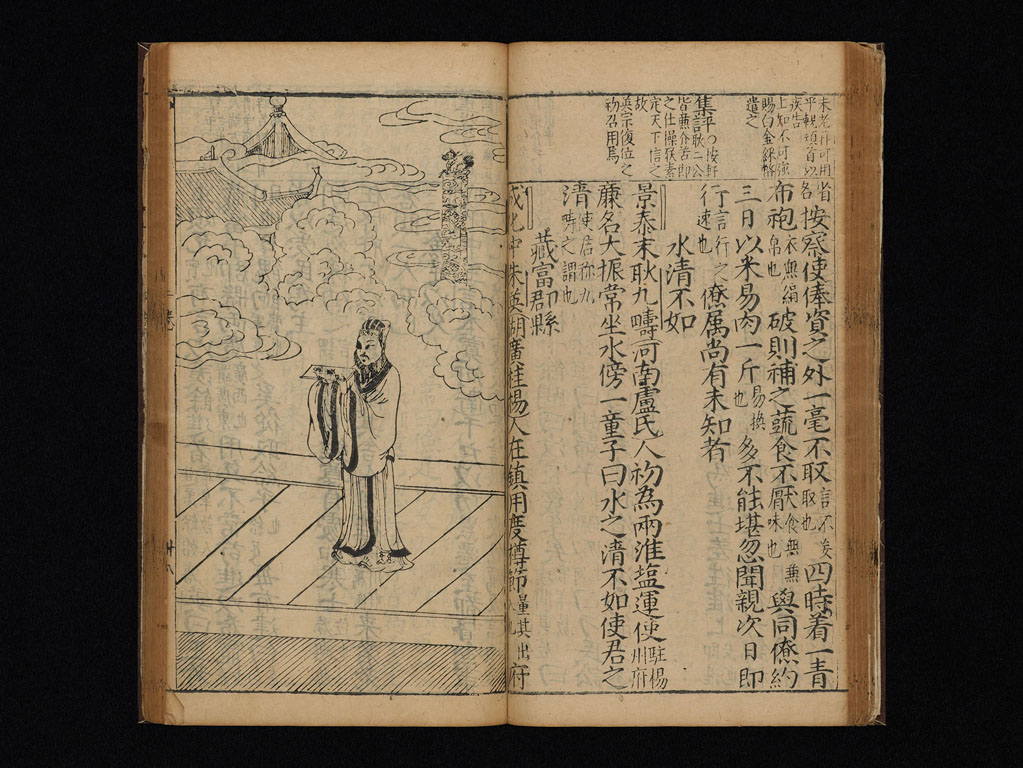 平輒頓首以
疾告
上知不可強
賜白金綵幣
遣之
集評○按軒
定天下信之
故
英宗復位之
初召用焉
按察使俸資之外一毫不取言不妄取也四時着一青
布袍衣無絹帛也破則補之蔬食不厭食無兼味也與同僚約
三日以米易肉一斤易換也多不能堪忽聞親次日即
行言行之速也僚属尚有未知者
水清不如
景泰末耿九疇河南盧氏人初為兩淮塩運使駐楊州府
廉名大振常坐水傍一童子曰水之清不如使君之
清使君稱九疇之謂也
藏富郡縣
成化中朱英湖廣桂楊人在鎮用度撙節量其出府